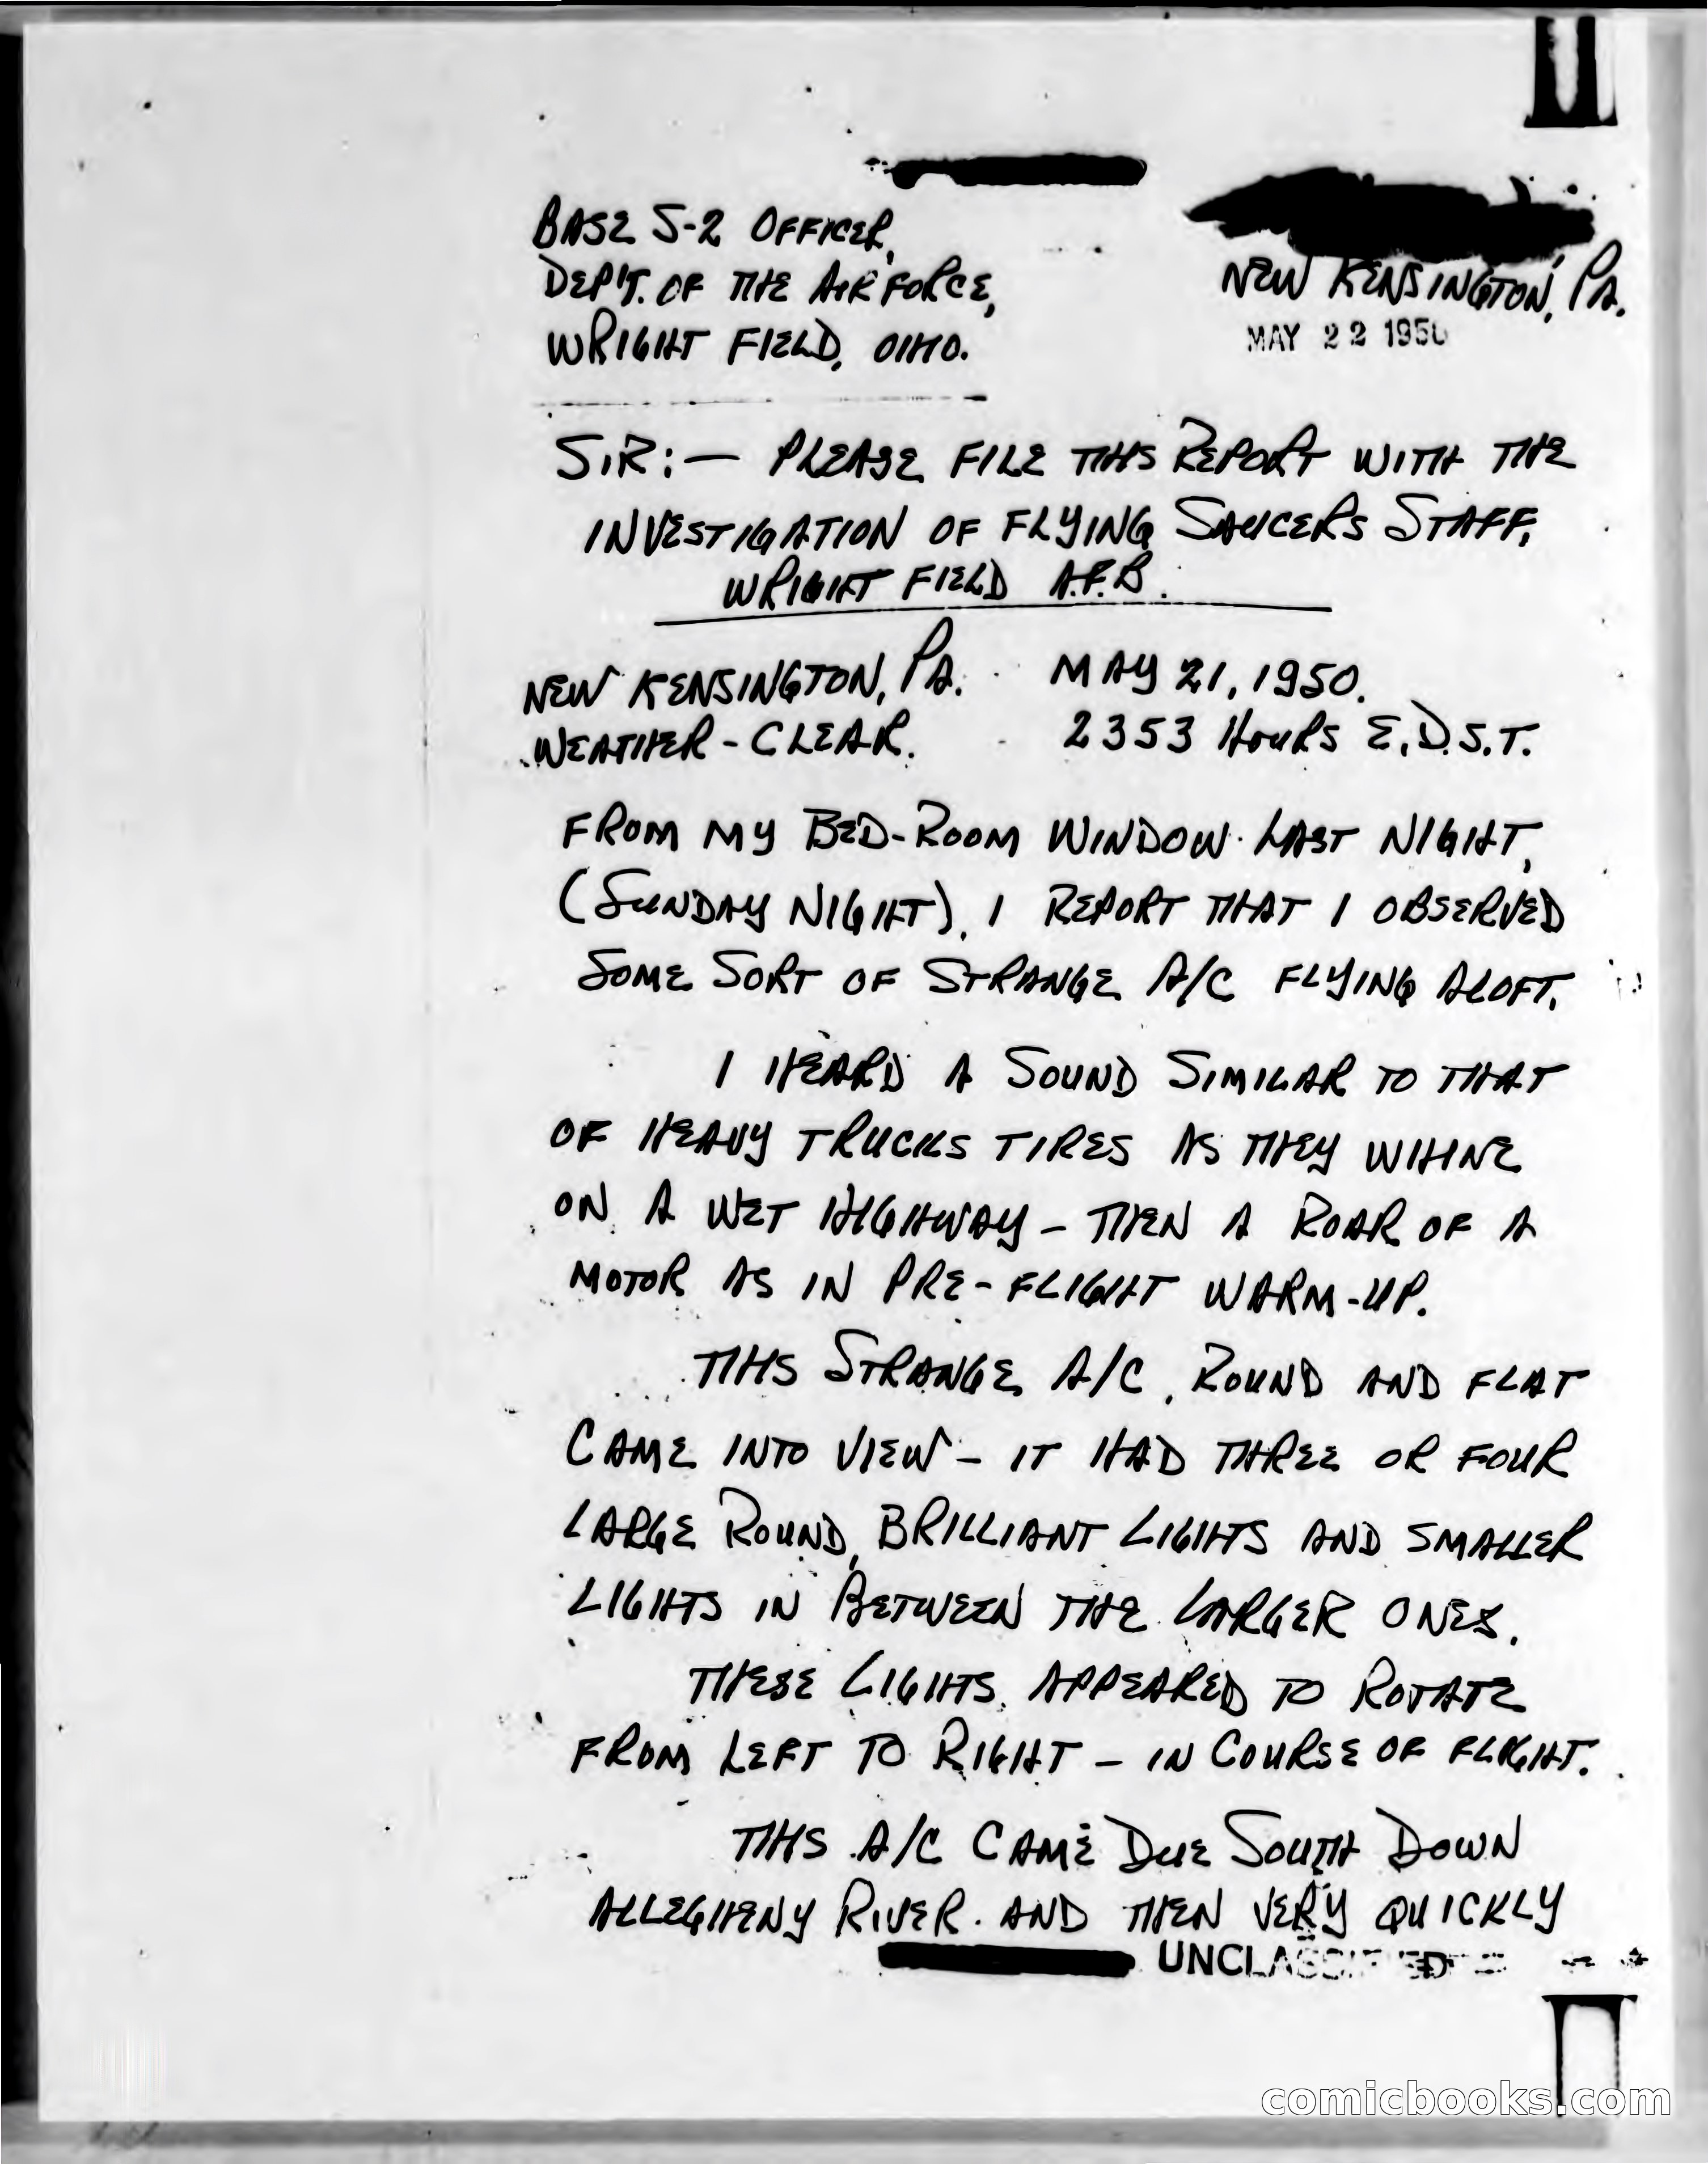 BASE S-2 OFFICER,
DEP'T. OF THE AIR FORCE,
WRIGHT FIELD, OHIO.
NEW KENSINGTON, PA.
MAY 22 1950
SIR:— PLEASE FILE THIS REPORT WITH THE
INVESTIGATION OF FLYING SAUCERS STAFF,
WRIGHT FIELD A.F.B.
NEW KENSINGTON, PA. MAY 21, 1950.
WEATHER - CLEAR. 2353 HOURS E.D.S.T.
FROM MY BED-ROOM WINDOW LAST NIGHT,
(SUNDAY NIGHT), I REPORT THAT I OBSERVED
SOME SORT OF STRANGE A/C FLYING ALOFT.
I HEARD A SOUND SIMILAR TO THAT
OF HEAVY TRUCKS TIRES AS THEY WHINE
ON A WET HIGHWAY — THEN A ROAR OF A
MOTOR AS IN PRE-FLIGHT WARM-UP.
THIS STRANGE A/C, ROUND AND FLAT
CAME INTO VIEW — IT HAD THREE OR FOUR
LARGE ROUND, BRILLIANT LIGHTS AND SMALLER
LIGHTS IN BETWEEN THE LARGER ONES.
THESE LIGHTS APPEARED TO ROTATE
FROM LEFT TO RIGHT — IN COURSE OF FLIGHT.
THIS A/C CAME DUE SOUTH DOWN
ALLEGHENY RIVER. AND THEN VERY QUICKLY
UNCLASSIFIED
comicbooks.com